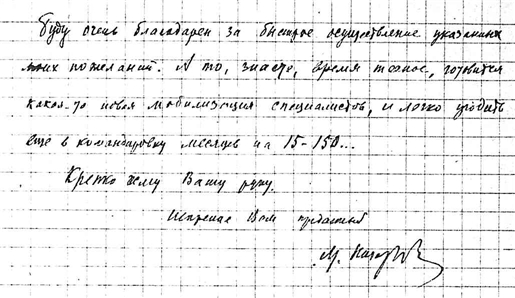 Буду очень благодарен за быстрое осуществление указанных
моих пожеланий. А то, знаете, время тесное, готовится
какая-то новая мобилизация специалистов, и легко угодить
еще в командировку месяцев на 15-150...
Крепко жму Вашу руку.
Искренне Вам преданный
М.